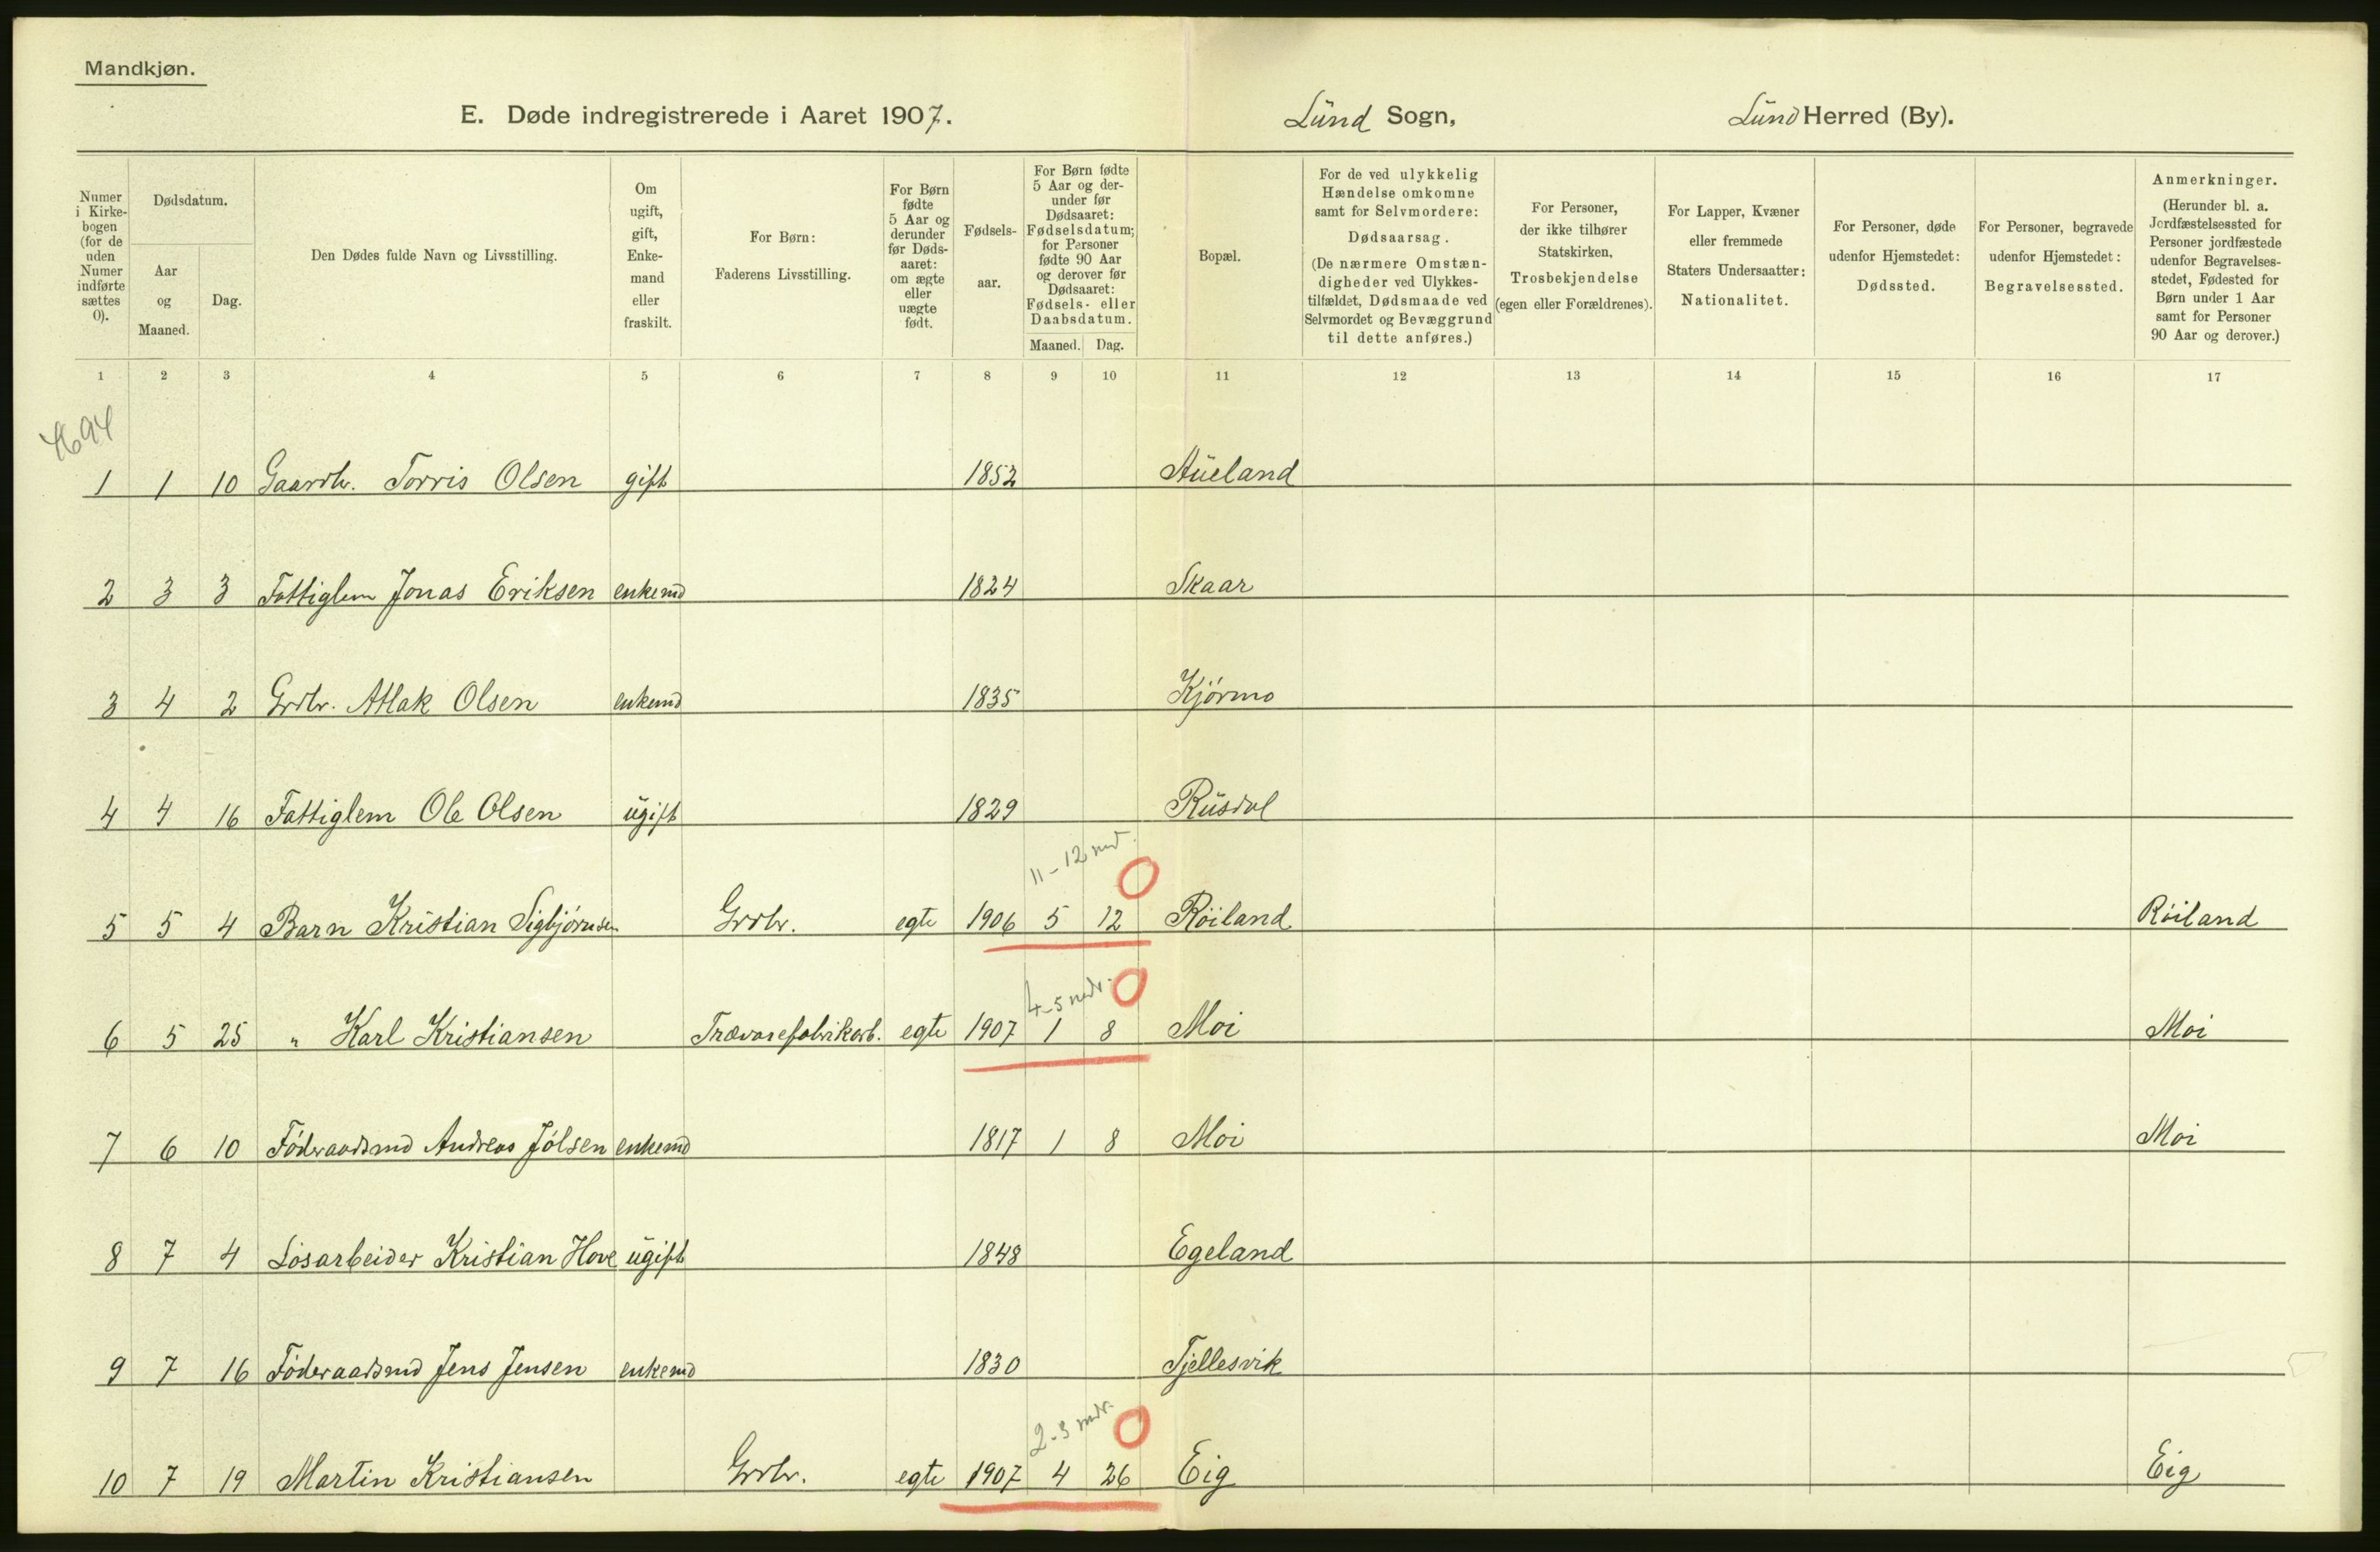 Mandkjøn.
E. Døde indregistrerede i Aaret 1907. Lund Sogn, Lund Herred (By).
Numer i Kirkebogen (for de uden Numer indførte sættes 0).
Dødsdatum.
Aar og Maaned.
Dag.
Den Dødes fulde Navn og Livsstilling.
Om ugift, gift, Enkemand eller fraskilt.
For Børn: Faderens Livsstilling.
For Børn fødte 5 Aar og derunder før Dødsaaret: om ægte eller uægte født.
Fødselsaar.
For Børn fødte 5 Aar og derunder før Dødsaaret: Fødselsdatum; for Personer fødte 90 Aar og derover før Dødsaaret: Fødsels- eller Daabsdatum.
Maaned. Dag.
Bopæl.
For de ved ulykkelig Hændelse omkomne samt for Selvmordere: Dødsaarsag. (De nærmere Omstændigheder ved Ulykkestilfældet, Dødsmaade ved Selvmordet og Bevæggrund til dette anføres.)
For Personer, der ikke tilhører Statskirken, Trosbekjendelse (egen eller Forældrenes).
For Lapper, Kvæner eller fremmede Staters Undersaatter: Nationalitet.
For Personer, døde udenfor Hjemstedet: Dødssted.
For Personer, begravede udenfor Hjemstedet: Begravelsessted.
Anmerkninger. (Herunder bl. a. Jordfæstelsessted for Personer jordfæstede udenfor Begravelsesstedet, Fødested for Børn under 1 Aar samt for Personer 90 Aar og derover.)
1 2 3 4 5 6 7 8 9 10 11 12 13 14 15 16 17
1 1 10 Gaardbr. Torris Olsen gift 1852 Aueland
2 3 3 Fattiglem Jonas Eriksen enkemd 1824 Skaar
3 4 2 Grdbr. Atlak Olsen enkemd 1835 Kjørmo
4 4 16 Fattiglem Ole Olsen ugift 1829 Rusdal
11-12 md.
5 5 4 Barn Kristian Sigbjørnsen Grdbr. egte 1906 5 12 Røiland Røiland
4-5 mdr.
6 5 25 " Karl Kristiansen Trævarefabrikarb. egte 1907 1 8 Moi Moi
7 6 10 Føderaadsmd Andreas Jølsen enkemd 1817 1 8 Moi Moi
8 7 4 Løsarbeider Kristian Hove ugift 1848 Egeland
9 7 16 Føderaadsmd Jens Jensen enkemd 1830 Tjellesvik
2-3 mdr.
10 7 19 Martin Kristiansen Grdbr. egte 1907 4 26 Eig Eig